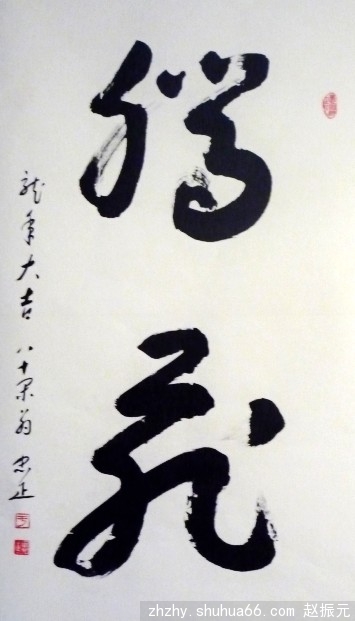 腾飞
龙年大吉 八十翁 忠正
zhzhy.shuhua66.com 赵振元